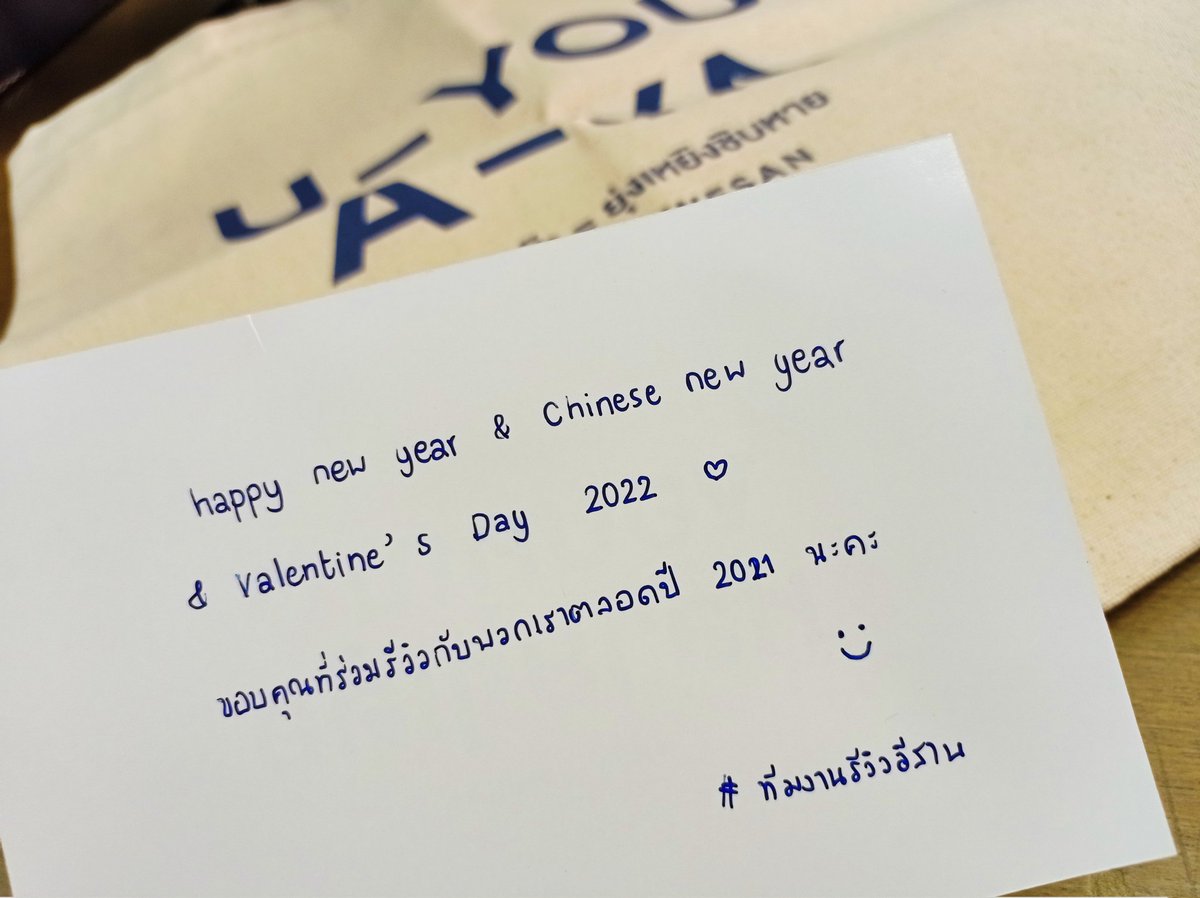 YOU
UÁ-YA
ยุ่งเหยิงชิบหาย
happy new year & Chinese new year
& Valentine's Day 2022 ♡
ขอบคุณที่ร่วมรีวิวกับพวกเราตลอดปี 2021 นะคะ
# ทีมงานรีวิวอีสาน